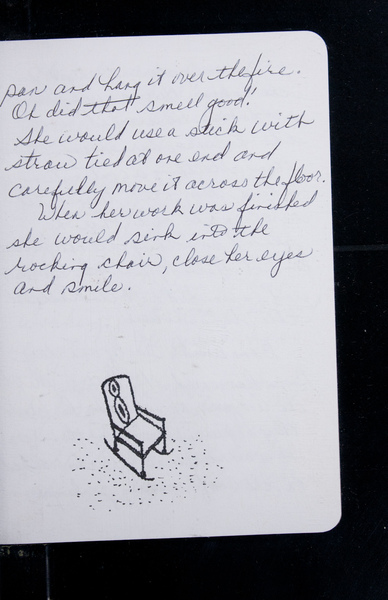 pan and hang it over the fire.
Oh did that smell good!
She would use a stick with
straw tied at one end and
carefully move it across the floor.
When her work was finished
she would sink into the
rocking chair, close her eyes
and smile.